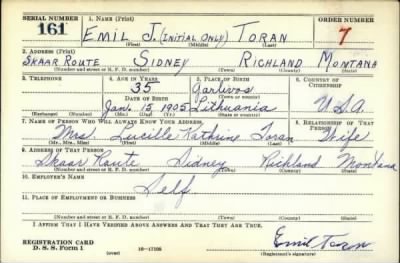 SERIAL NUMBER 1. NAME (Print) ORDER NUMBER
161 EMIL J. (INITIAL ONLY) TORAN 7
(First) (Middle) (Last)
2. ADDRESS (Print)
SKAAR ROUTE SIDNEY RICHLAND MONTANA
(Number and street or R. F. D. number) (Town) (County) (State)
3. TELEPHONE 4. AGE IN YEARS 5. PLACE OF BIRTH 6. COUNTRY OF CITIZENSHIP
35 Garlivos
DATE OF BIRTH (Town or county)
Jan. 13 1905 Lithuania U.S.A
(Exchange) (Number) (Mo.) (Day) (Yr.) (State or country)
7. NAME OF PERSON WHO WILL ALWAYS KNOW YOUR ADDRESS 8. RELATIONSHIP OF THAT PERSON
Mrs. Lucille Kathrine Toran Wife
(Mr., Mrs., Miss) (First) (Middle) (Last)
9. ADDRESS OF THAT PERSON
Skaar Route Sidney Richland Montana
(Number and street or R. F. D. number) (Town) (County) (State)
10. EMPLOYER'S NAME
Self
11. PLACE OF EMPLOYMENT OR BUSINESS
(Number and street or R. F. D. number) (Town) (County) (State)
I AFFIRM THAT I HAVE VERIFIED ABOVE ANSWERS AND THAT THEY ARE TRUE.
REGISTRATION CARD Emil Toran
D. S. S. Form 1 (over) 16—17105 (Registrant's signature)